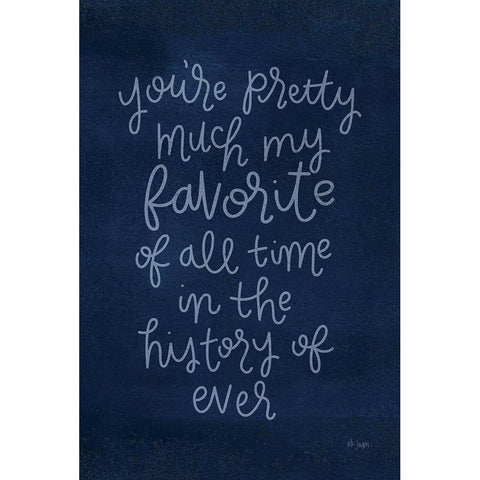 you're pretty
much my
favorite
of all time
in the
history of
ever